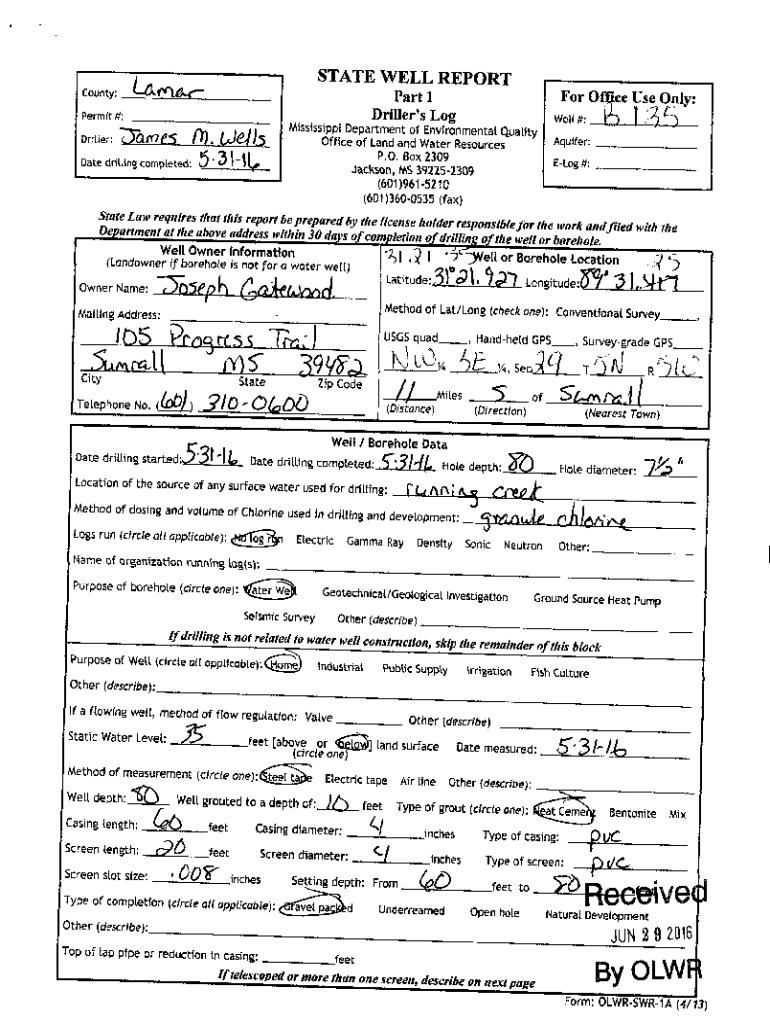 STATE WELL REPORT
Part 1
Driller's Log
Mississippi Department of Environmental Quality
Office of Land and Water Resources
P.O. Box 2309
Jackson, MS 39225-2309
(601)961-5210
(601)360-0535 (fax)
County: Lamar
Permit #:
Driller: James M. Wells
Date drilling completed: 5-31-16
For Office Use Only:
Well #: B 135
Aquifer:
E-Log #:
State Law requires that this report be prepared by the license holder responsible for the work and filed with the
Department at the above address within 30 days of completion of drilling of the well or borehole.
Well Owner Information
(Landowner if borehole is not for a water well)
Owner Name: Joseph Gatewood
Mailing Address:
105 Progress Trail
Sumrall MS 39482
City State Zip Code
Telephone No. (601) 310-0600
31.21 Well or Borehole Location
Latitude: 31° 21.927 Longitude: 89° 31.417
Method of Lat/Long (check one): Conventional Survey
USGS quad , Hand-held GPS , Survey-grade GPS
NW ¼ SE ¼, Sec 29 T 5N R
11 Miles S of Sumrall
(Distance) (Direction) (Nearest Town)
Well / Borehole Data
Date drilling started: 5-31-16 Date drilling completed: 5-31-16 Hole depth: 80 Hole diameter: 7½"
Location of the source of any surface water used for drilling: running creek
Method of dosing and volume of Chlorine used in drilling and development: granule chlorine
Logs run (circle all applicable): No log run Electric Gamma Ray Density Sonic Neutron Other:
Name of organization running log(s):
Purpose of borehole (circle one): Water Well Geotechnical/Geological Investigation Ground Source Heat Pump
Seismic Survey Other (describe)
If drilling is not related to water well construction, skip the remainder of this block
Purpose of Well (circle all applicable): Home Industrial Public Supply Irrigation Fish Culture
Other (describe):
If a flowing well, method of flow regulation: Valve Other (describe)
Static Water Level: 35 feet [above or below] land surface Date measured: 5-31-16
(circle one)
Method of measurement (circle one): Steel tape Electric tape Air line Other (describe):
Well depth: 80 Well grouted to a depth of: 10 feet Type of grout (circle one): Neat Cement Bentonite Mix
Casing length: 60 feet Casing diameter: 4 inches Type of casing: pvc
Screen length: 20 feet Screen diameter: 4 inches Type of screen: pvc
Screen slot size: .008 inches Setting depth: From 60 feet to 80
Type of completion (circle all applicable): Gravel packed Underreamed Open hole Natural Development
Other (describe):
Top of lap pipe or reduction in casing: feet
If telescoped or more than one screen, describe on next page
Received
JUN 29 2016
By OLWR
Form: OLWR-SWR-1A (4/13)